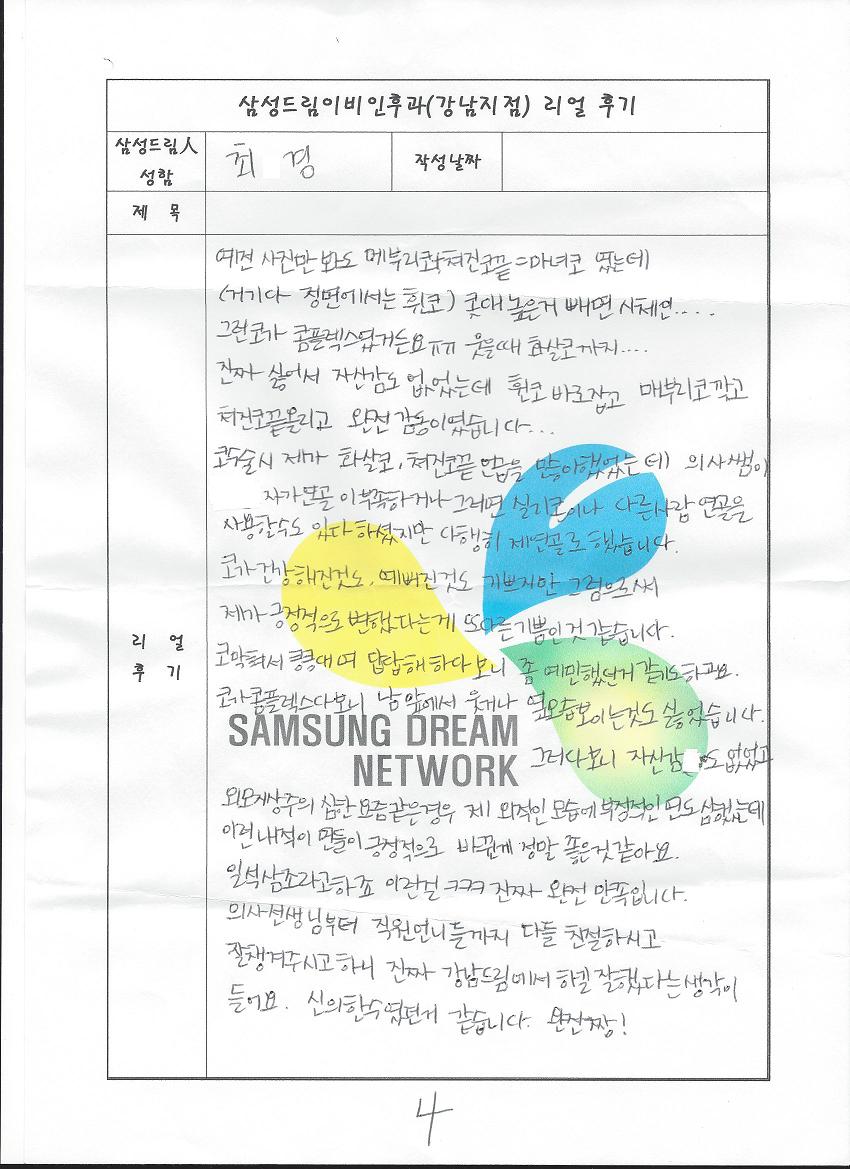 삼성드림이비인후과(강남지점) 리얼 후기
삼성드림人
성함
최 경
작성날짜
제 목
예전 사진만 봐도 메부리코와 쳐진코끝=마녀코 였는데
(거기다 정면에서는 휜코) 콧대 높은거 빼면 시체인....
그런코가 콤플렉스였거든요ㅠㅠ 웃을때 화살코까지....
진짜 싫어서 자신감도 없었는데 휜코 바로잡고 매부리코깎고
쳐진코끝올리고 완전 감동이였습니다...
코수술시 제가 화살코, 쳐진코끝 언급을 많이했었는데) 의사쌤이
자가연골이 부족하거나 그러면 실리콘이나 다른사람 연골을
사용할수도 있다 하셨지만 다행히 제연골로 했습니다.
코가건강해진것도, 예뻐진것도 기쁘지만 그럼으로써
제가 긍정적으로 변했다는게 또다른기쁨인것 같습니다.
코막혀서 킁킁대며 답답해하다보니 좀 예민했던거 같기도하고요.
코가콤플렉스다보니 남앞에서 웃거나 옆모습보이는것도 싫었습니다.
그러다보니 자신감 도 없었고
외모지상주의 심한 요즘같은경우 제 외적인 모습에 부정적인 면도 심했는데
이런 내적이 면들이 긍정적으로 바뀐게 정말 좋은것 같아요.
일석삼조라고하죠 이런걸 ㅋㅋㅋ 진짜 완전 만족입니다.
의사선생님부터 직원언니들까지 다들 친절하시고
잘챙겨주시고하니 진짜 강남드림에서 하길 잘했다는생각이
들어요. 신의한수였던거 같습니다. 완전짱!
리 얼
후 기
SAMSUNG DREAM
NETWORK
4